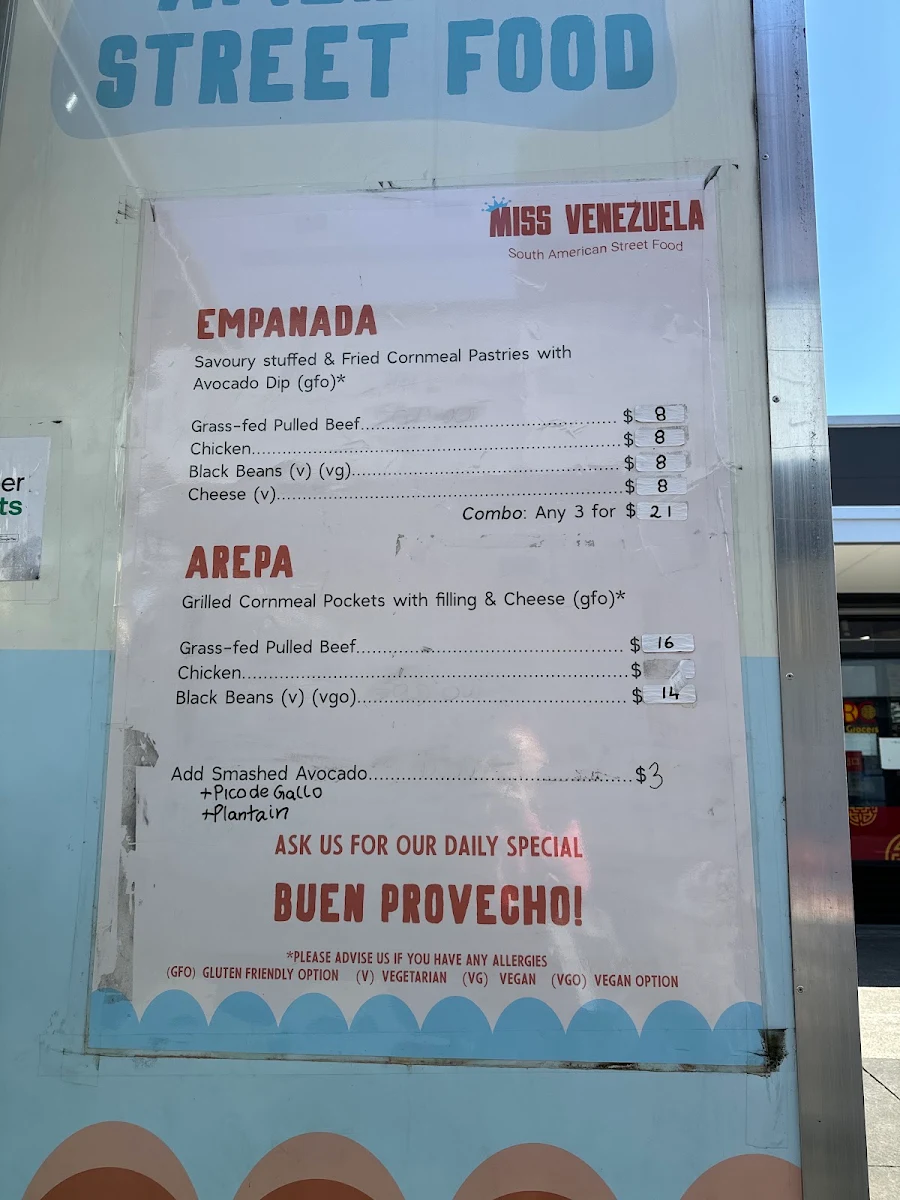 STREET FOOD
MISS VENEZUELA
South American Street Food
EMPANADA
Savoury stuffed & Fried Cornmeal Pastries with
Avocado Dip (gfo)*
Grass-fed Pulled Beef.................... $ 8
Chicken.................... $ 8
Black Beans (v) (vg).................... $ 8
Cheese (v).................... $ 8
Combo: Any 3 for $ 21
AREPA
Grilled Cornmeal Pockets with filling & Cheese (gfo)*
Grass-fed Pulled Beef.................... $ 16
Chicken.................... $
Black Beans (v) (vgo).................... $ 14
Add Smashed Avocado.................... $3
+Pico de Gallo
+Plantain
ASK US FOR OUR DAILY SPECIAL
BUEN PROVECHO!
*PLEASE ADVISE US IF YOU HAVE ANY ALLERGIES
(GFO) GLUTEN FRIENDLY OPTION (V) VEGETARIAN (VG) VEGAN (VGO) VEGAN OPTION